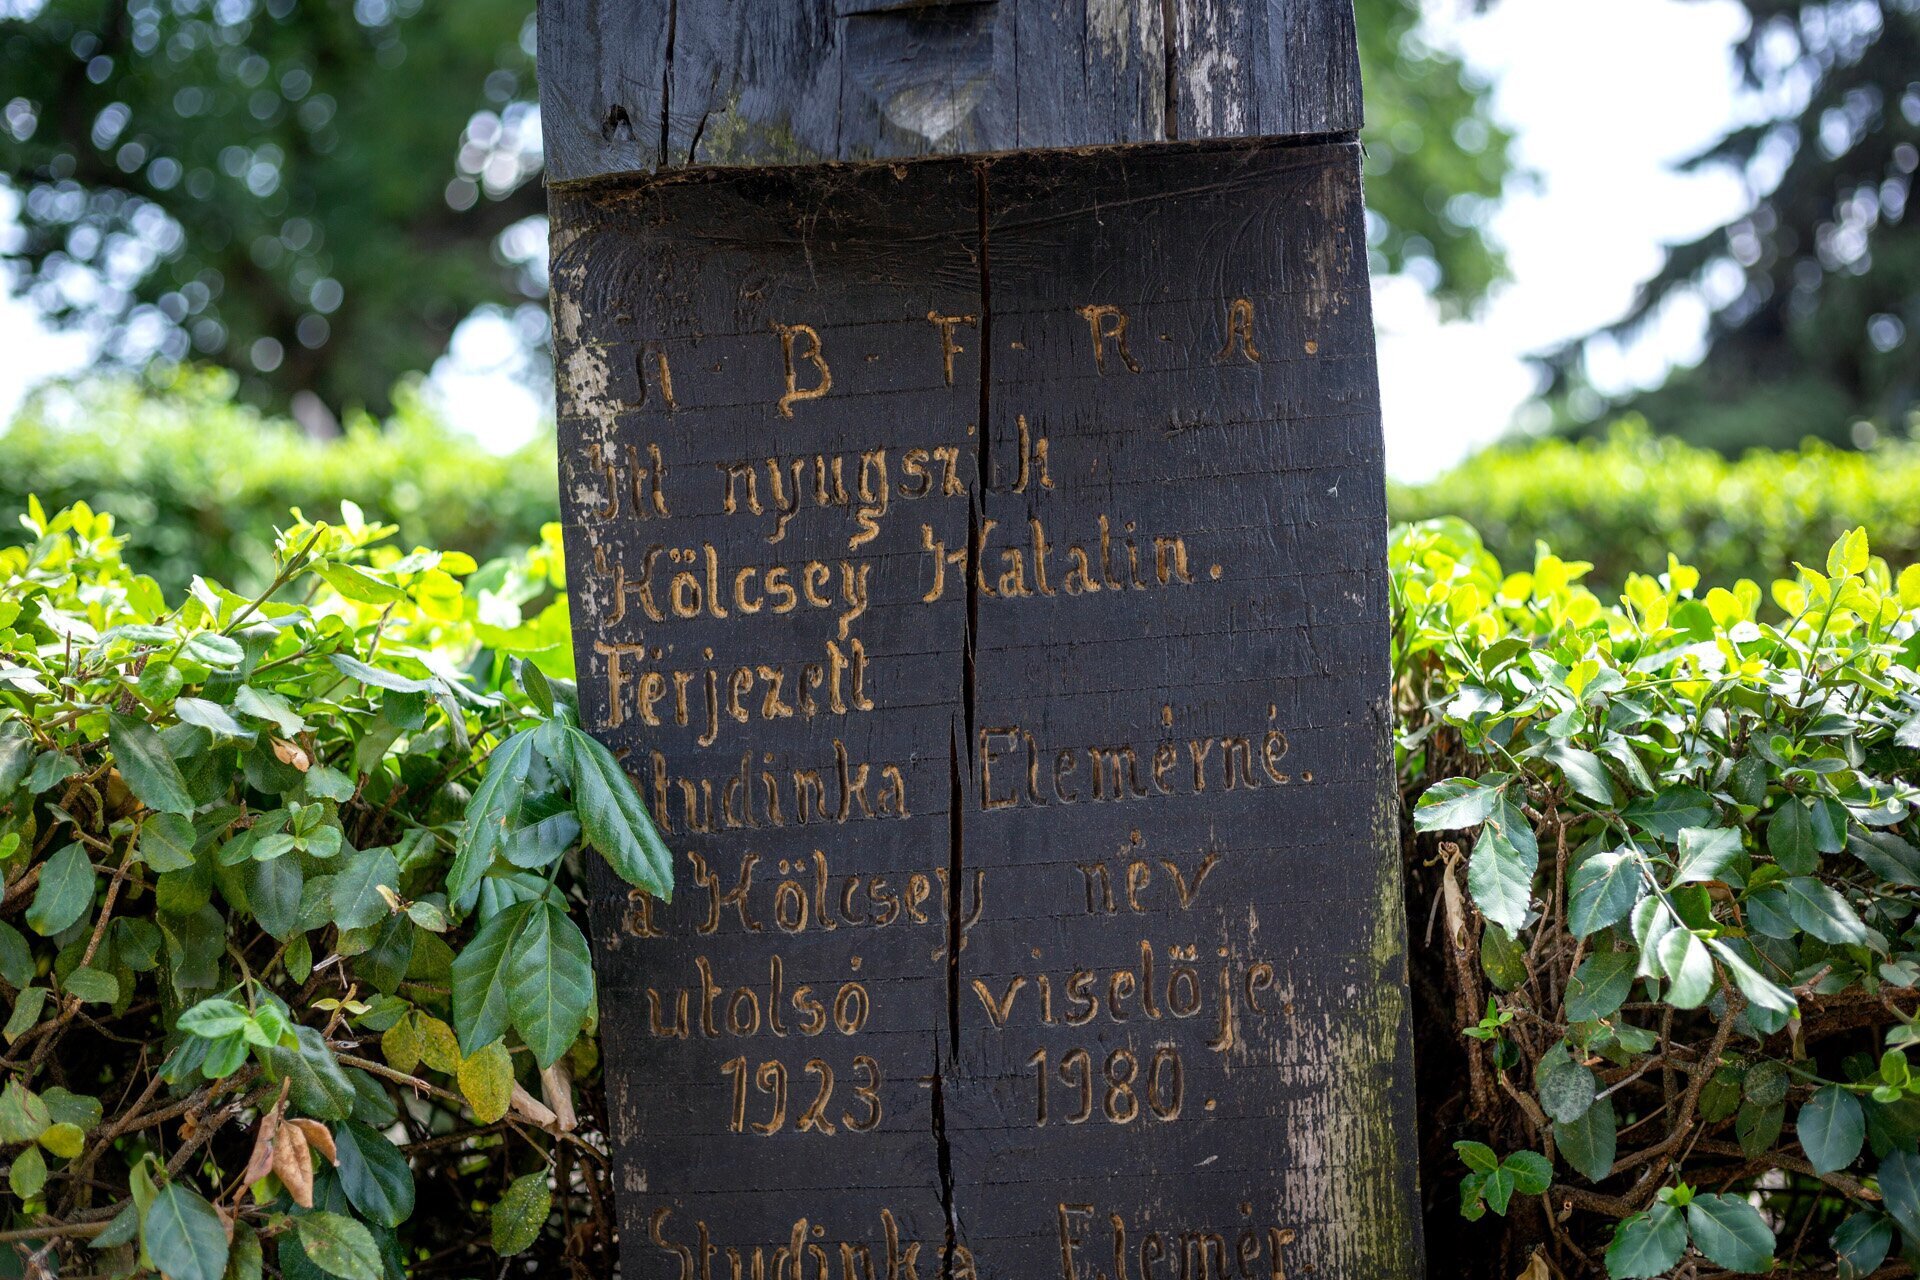 A · B · F · R · A .
Itt nyugszik
Kölcsey Katalin.
Férjezett
Studinka Elemérné.
a Kölcsey név
utolsó viselöje.
1923 - 1980.
Studinka Elemér